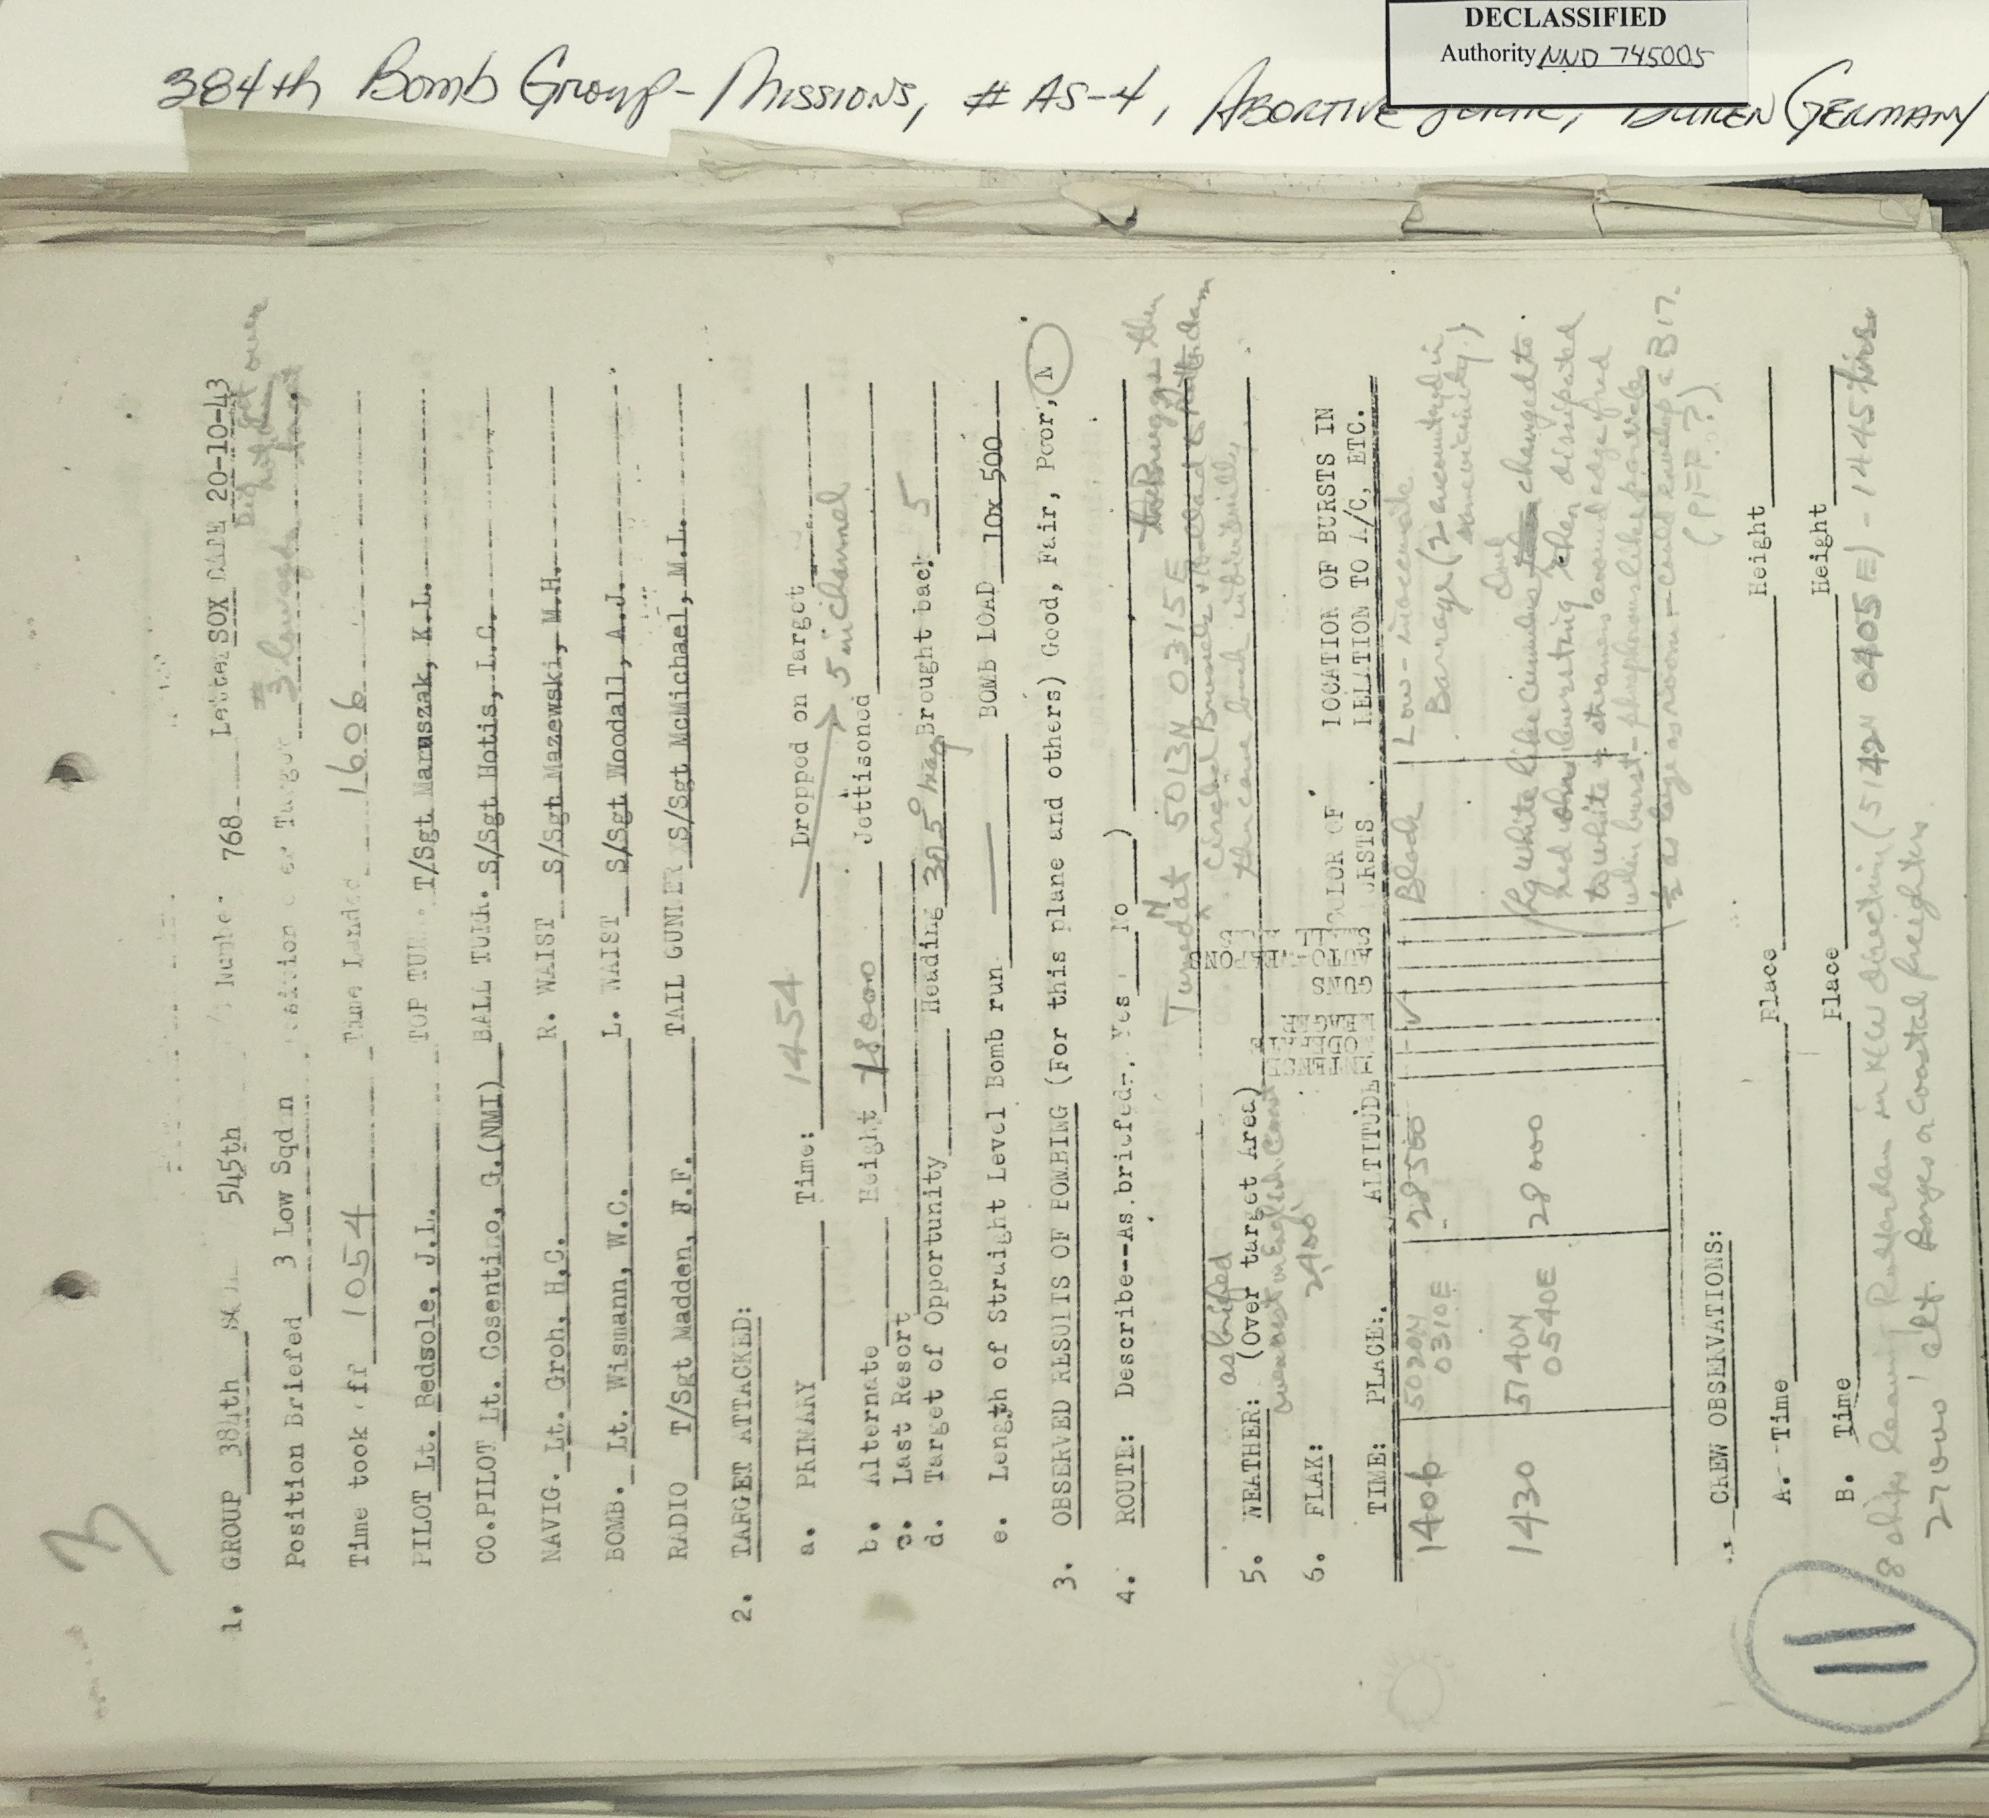 DECLASSIFIED
Authority NND 745005
384th Bomb Group - Missions, # AS-4, Abortive Sortie, Duren Germany
3
1. GROUP 384th 545th Number 768 Letter SOX DATE 20-10-43
Did not get over target
Position Briefed 3 Low Sqdn Position over Target #3 low
Time took off 1054 Time Landed 1606
PILOT Lt. Bedsole, J.L. TOP TUR. T/Sgt Maruszak, K.L.
CO.PILOT Lt. Cosentino, G.(NMI) BALL TUR. S/Sgt Hotis, L.C.
NAVIG. Lt. Groh, H.C. R. WAIST S/Sgt Mazewski, M.H.
BOMB. Lt. Wismann, W.C. L. WAIST S/Sgt Woodall, A.J.
RADIO T/Sgt Madden, W.F. TAIL GUNNER S/Sgt McMichael, M.L.
2. TARGET ATTACKED:
a. PRIMARY Time: 1454 Dropped on Target
5 in channel
b. Alternate Height 18000 Jettisoned
c. Last Resort
d. Target of Opportunity Heading 305° mag Brought back 5
e. Length of Straight Level Bomb run — BOMB LOAD 10x 500
3. OBSERVED RESULTS OF BOMBING (For this plane and others) Good, Fair, Poor, N
4. ROUTE: Describe--As briefed-, Yes No )
Turned at 5013N 0315E Bruges then
circled Brussels & Holland & Rotterdam
then came back individually.
as briefed
5. WEATHER: (Over target Area)
overcast on English Coast
2400'
6. FLAK: COLOR OF LOCATION OF BURSTS IN
TIME: PLACE: ALTITUDE INTENSE MEAGER GUNS AUTO-WEAPONS BURSTS RELATION TO A/C, ETC.
1406 5020N 0310E 28500 ✓ Black Low - inaccurate
Barrage (2 encountered in
same vicinity.)
1430 5140N 0540E 28000 White like cumulus changed to
red when bursting then dissipated
to white & streamers around edge of red
when burst - phosphorus like particles
(½ as large as room - could envelop a B17.
(PFF??)
CREW OBSERVATIONS:
A. Time Place Height
B. Time Place Height
8 ships leaving Rotterdam in NW direction (5142N 0405E) - 1445 hrs
27000' alt. Barges or coastal freighters.
11